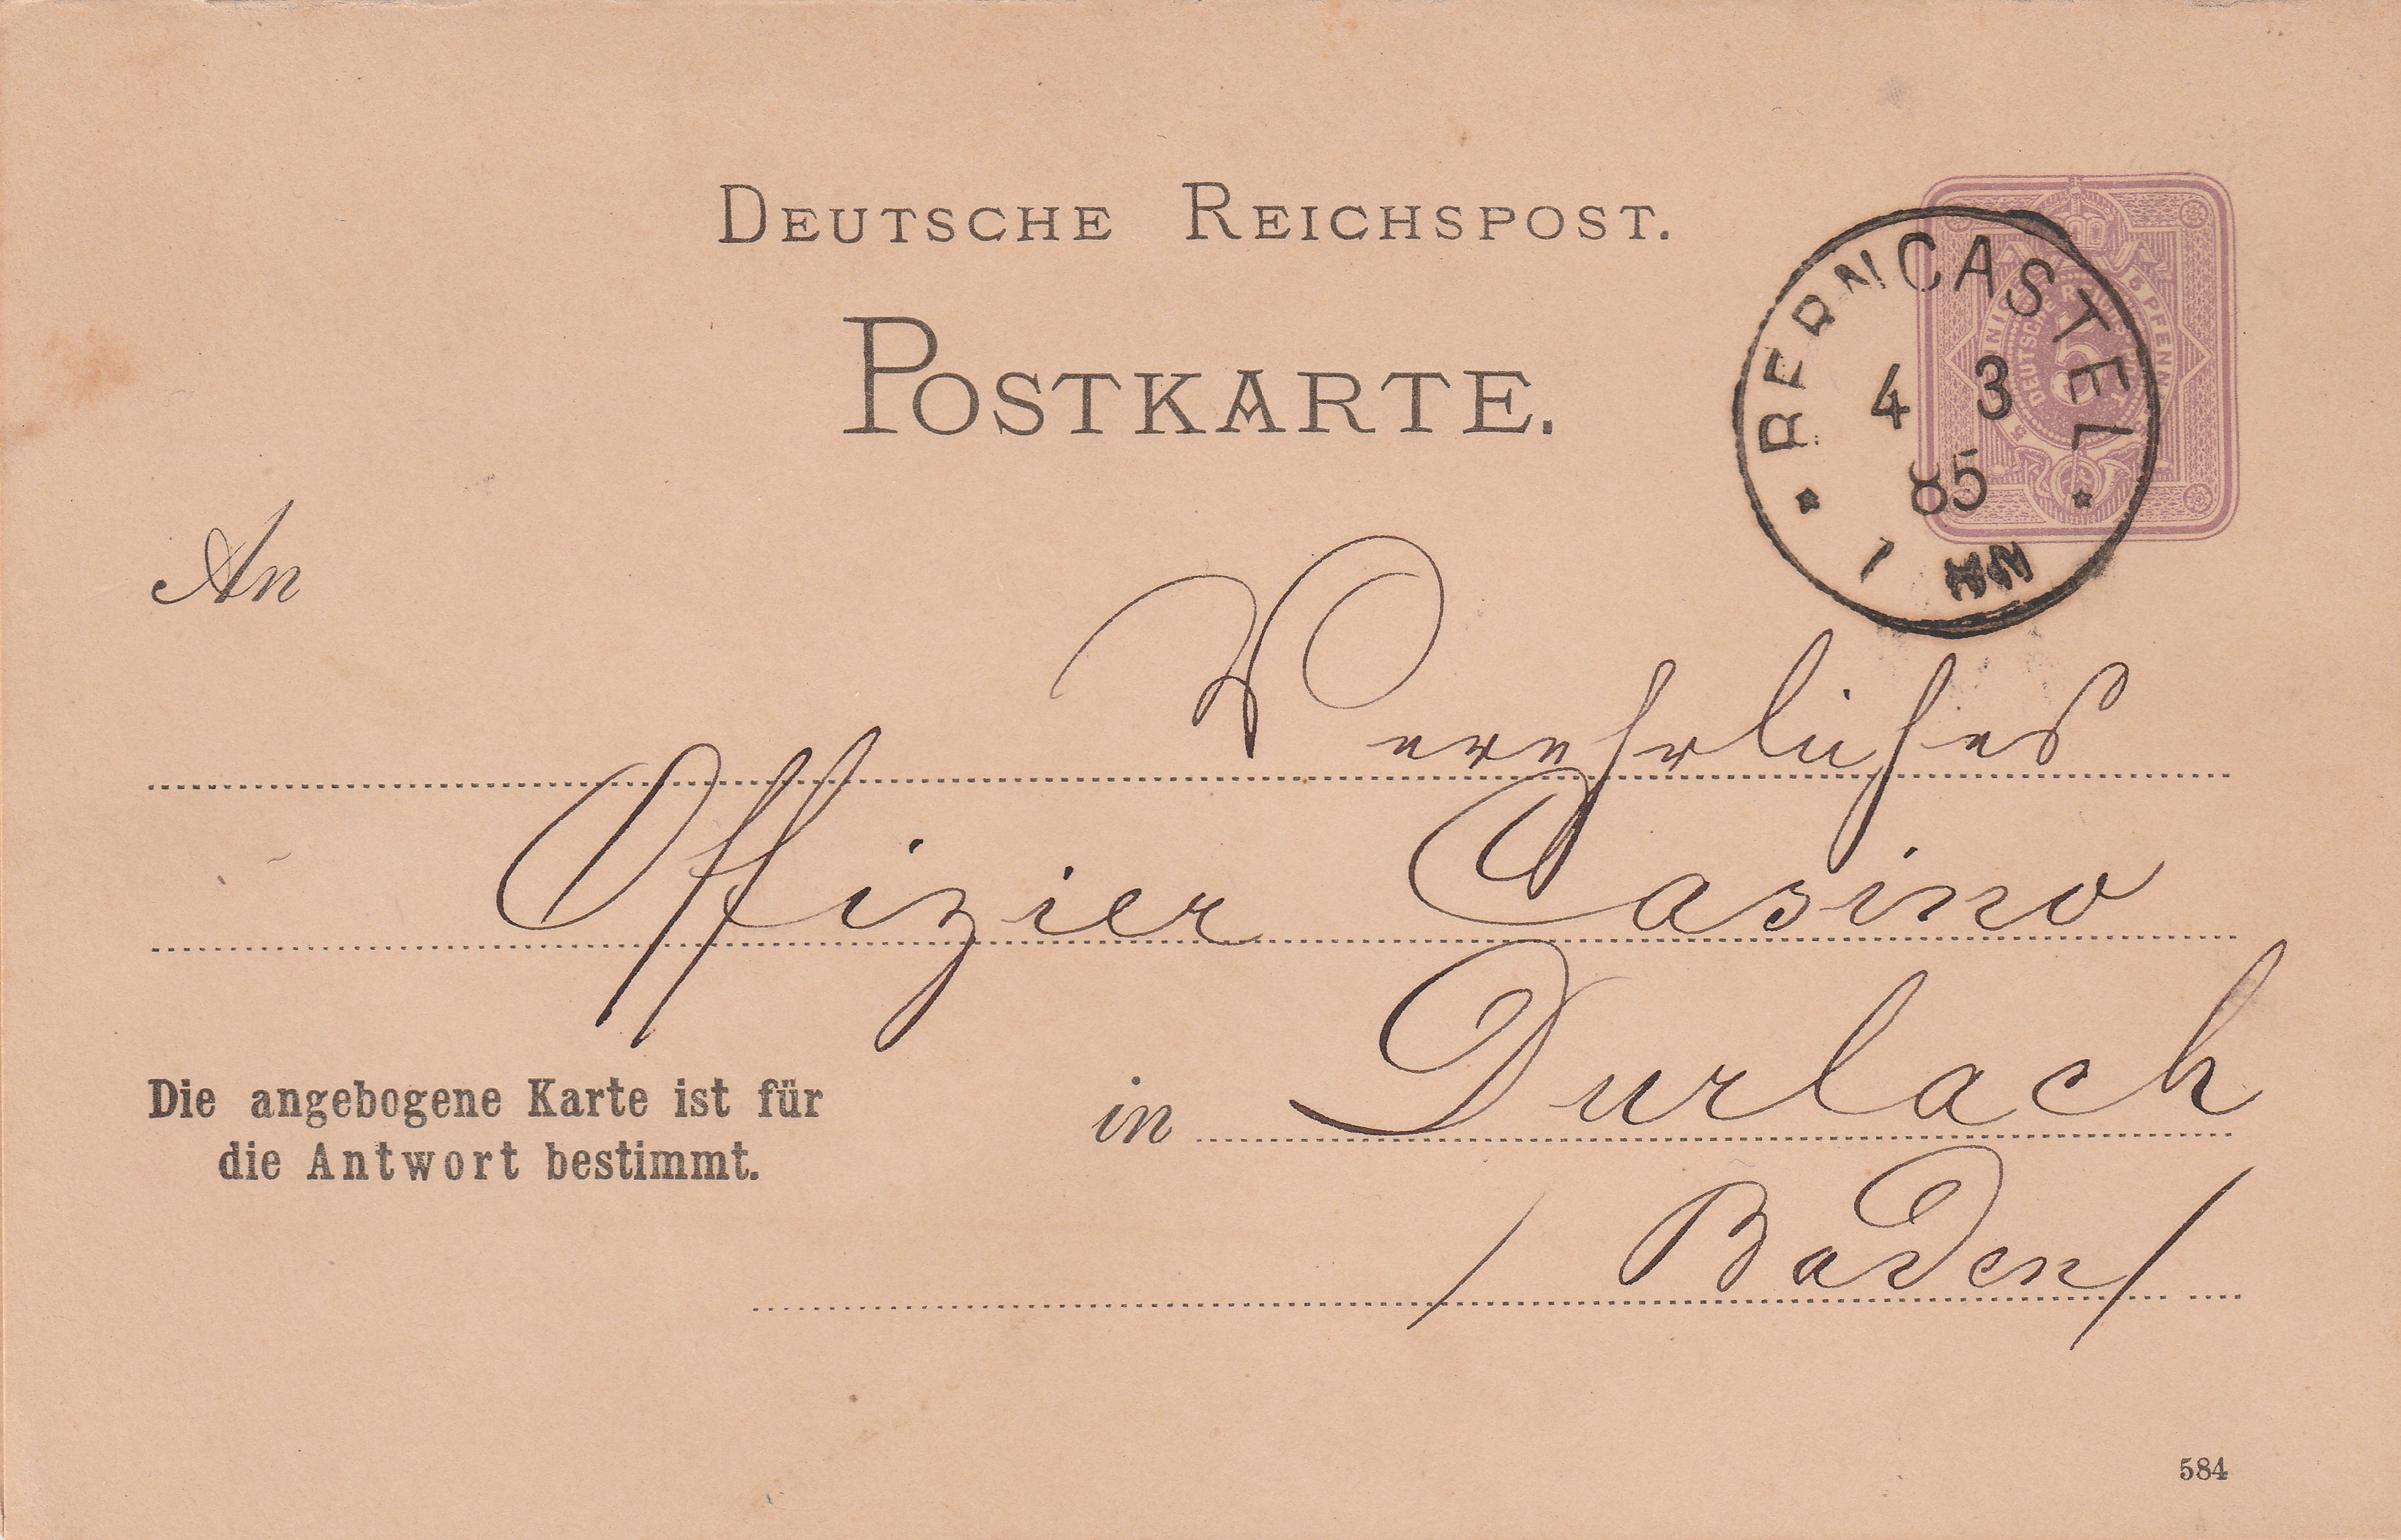 DEUTSCHE REICHSPOST.
POSTKARTE.
BERNCASTEL
4 3
85
1
5
An
Verehrliches
Offizier Casino
Die angebogene Karte ist für
die Antwort bestimmt.
in Durlach
/ Baden /
584